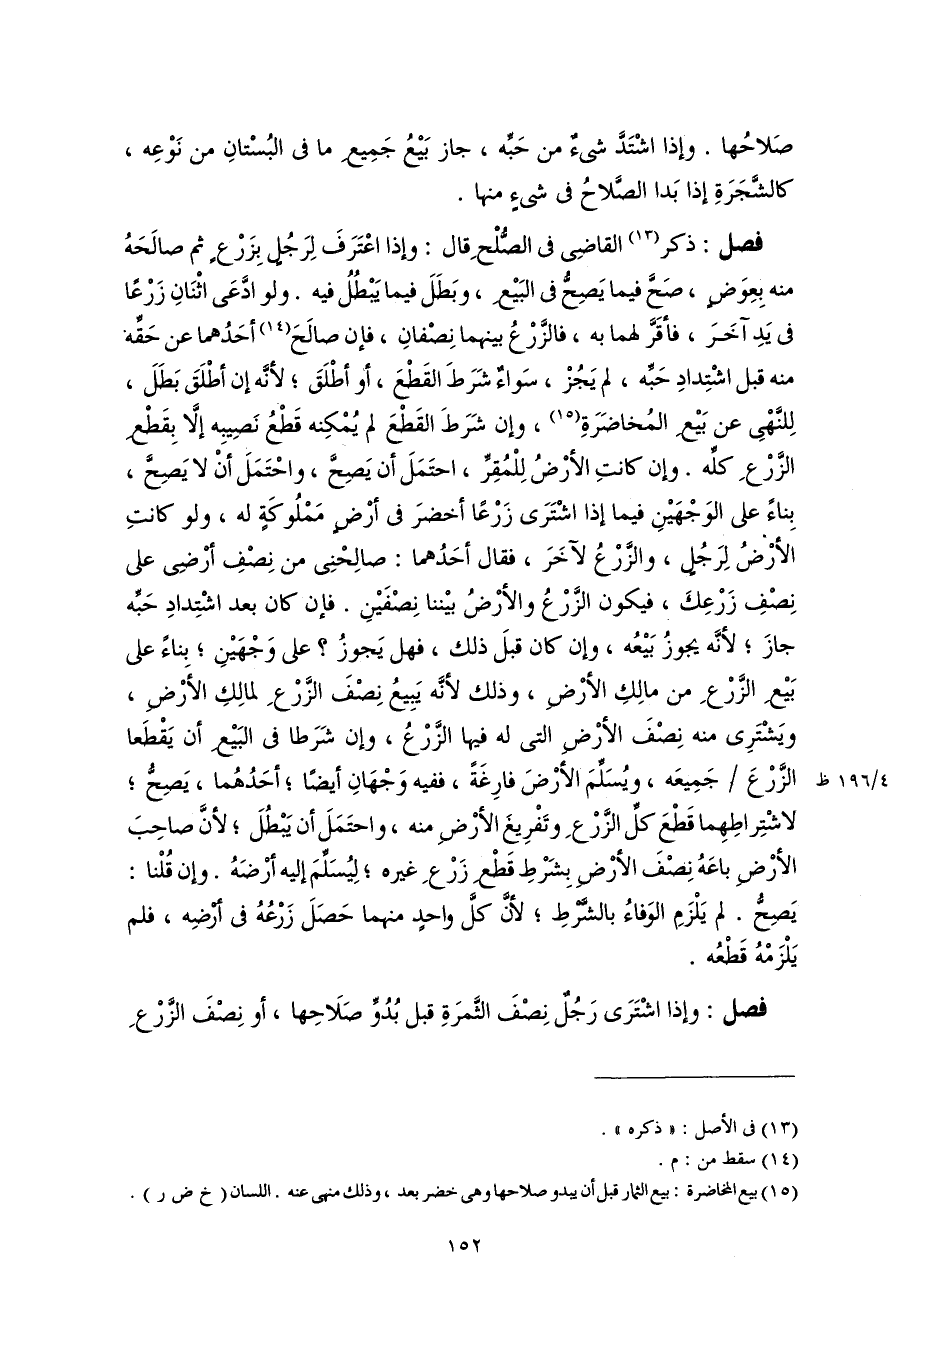 صَلَاحُها . وإذا اشْتَدَّ شىءٌ من حَبِّه ، جاز بَيْعُ جَمِيعِ ما فى البُسْتانِ من نَوْعِه ،
كالشَّجَرَةِ إذا بَدا الصَّلاحُ فى شىءٍ منها .
فصل : ذكر(١٣) القاضِى فى الصُّلْحِ قال : وإذا اعْتَرَفَ لِرَجُلٍ بِزَرْعٍ ثم صالَحَهُ
منه بِعِوَضٍ ، صَحَّ فيما يَصِحُّ فى البَيْعِ ، وبَطَلَ فيما يَبْطُلُ فيه . ولو ادَّعَى اثْنَانِ زَرْعًا
فى يَدِ آخَرَ ، فأقَرَّ لهما به ، فالزَّرْعُ بينهما نِصْفان ، فإن صالَحَ(١٤) أحَدُهما عن حَقِّه
منه قبل اشْتِدادِ حَبِّه ، لم يَجُزْ ، سَواءٌ شَرَطَ القَطْعَ ، أو أطْلَقَ ؛ لأنَّه إن أطْلَقَ بَطَلَ ،
لِلنَّهْىِ عن بَيْعِ المُخاضَرَةِ(١٥) ، وإن شَرَطَ القَطْعَ لم يُمْكِنه قَطْعُ نَصِيبِه إلَّا بِقَطْعِ
الزَّرْعِ كلِّه . وإن كانتِ الأرْضُ لِلْمُقِرِّ ، احتَمَلَ أن يَصِحَّ ، واحْتَمَلَ أنْ لا يَصِحَّ ،
بِناءً على الوَجْهَيْنِ فيما إذا اشْتَرَى زَرْعًا أخضرَ فى أرْضٍ مَمْلُوكَةٍ له ، ولو كانتِ
الأرْضُ لِرَجُلٍ ، والزَّرْعُ لآخَرَ ، فقال أحَدُهما : صالِحْنِى من نِصْفِ أرْضِى على
نِصْفِ زَرْعِكَ ، فيكون الزَّرْعُ والأرْضُ بيْننا نِصْفَيْنِ . فإن كان بعد اشْتِدادِ حَبِّه
جازَ ؛ لأنَّه يجوزُ بَيْعُه ، وإن كان قبلَ ذلك ، فهل يَجوزُ ؟ على وَجْهَيْنِ ؛ بِناءً على
بَيْعِ الزَّرْعِ من مالِكِ الأرْضِ ، وذلك لأنَّه يَبِيعُ نِصْفَ الزَّرْعِ لمالِكِ الأرْضِ ،
ويَشْتَرِى منه نِصْفَ الأرْضِ التى له فيها الزَّرْعُ ، وإن شَرَطا فى البَيْعِ أن يَقْطَعا
الزَّرْعَ / جَمِيعَه ، ويُسَلِّمَ الأرْضَ فارِغَةً ، ففيه وَجْهَانِ أيضًا ؛ أحَدُهُما ، يَصِحُّ ؛ ١٩٦/٤ ظ
لاشْتِراطِهِما قَطْعَ كلِّ الزَّرْعِ وتَفْرِيغَ الأرْضِ منه ، واحتَمَلَ أن يَبْطُلَ ؛ لأنَّ صاحِبَ
الأرْضِ باعَهُ نِصْفَ الأرْضِ بِشَرْطِ قَطْعِ زَرْعِ غيره ؛ لِيُسَلِّمَ إليه أرْضَهُ . وإن قُلْنا :
يَصِحُّ . لم يَلْزَمِ الوَفاءُ بالشَّرْطِ ؛ لأنَّ كلَّ واحدٍ منهما حَصَلَ زَرْعُهُ فى أرْضِه ، فلم
يَلْزَمْهُ قَطْعُه .
فصل : وإذا اشْتَرَى رَجُلٌ نِصْفَ الثَّمَرَةِ قبل بُدُوِّ صَلَاحِها ، أو نِصْفَ الزَّرْعِ
(١٣) فى الأصل : « ذكره » .
(١٤) سقط من : م .
(١٥) بيع المخاضرة : بيع الثمار قبل أن يبدو صلاحها وهى خضر بعد ، وذلك منهى عنه . اللسان ( خ ض ر ) .
١٥٢